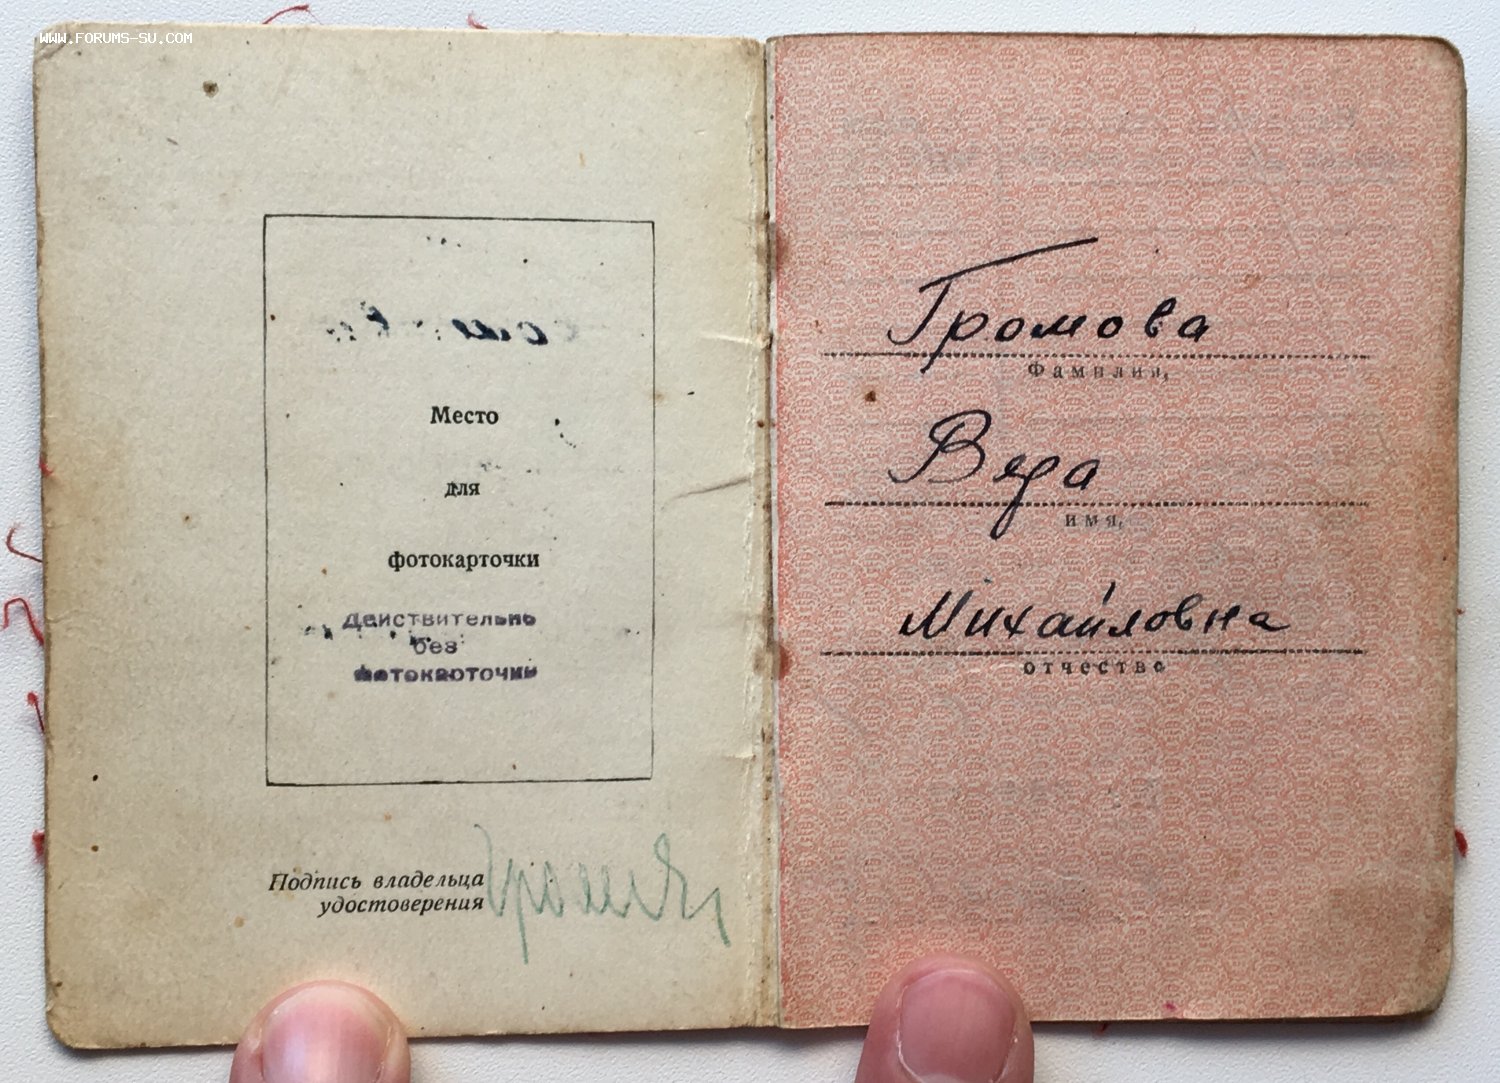 WWW.FORUMS-SU.COM
Место
для
фотокарточки
Действительно
без
фотокарточки
Подпись владельца
удостоверения
Громова
Фамилия,
Вера
имя,
Михайловна
отчество